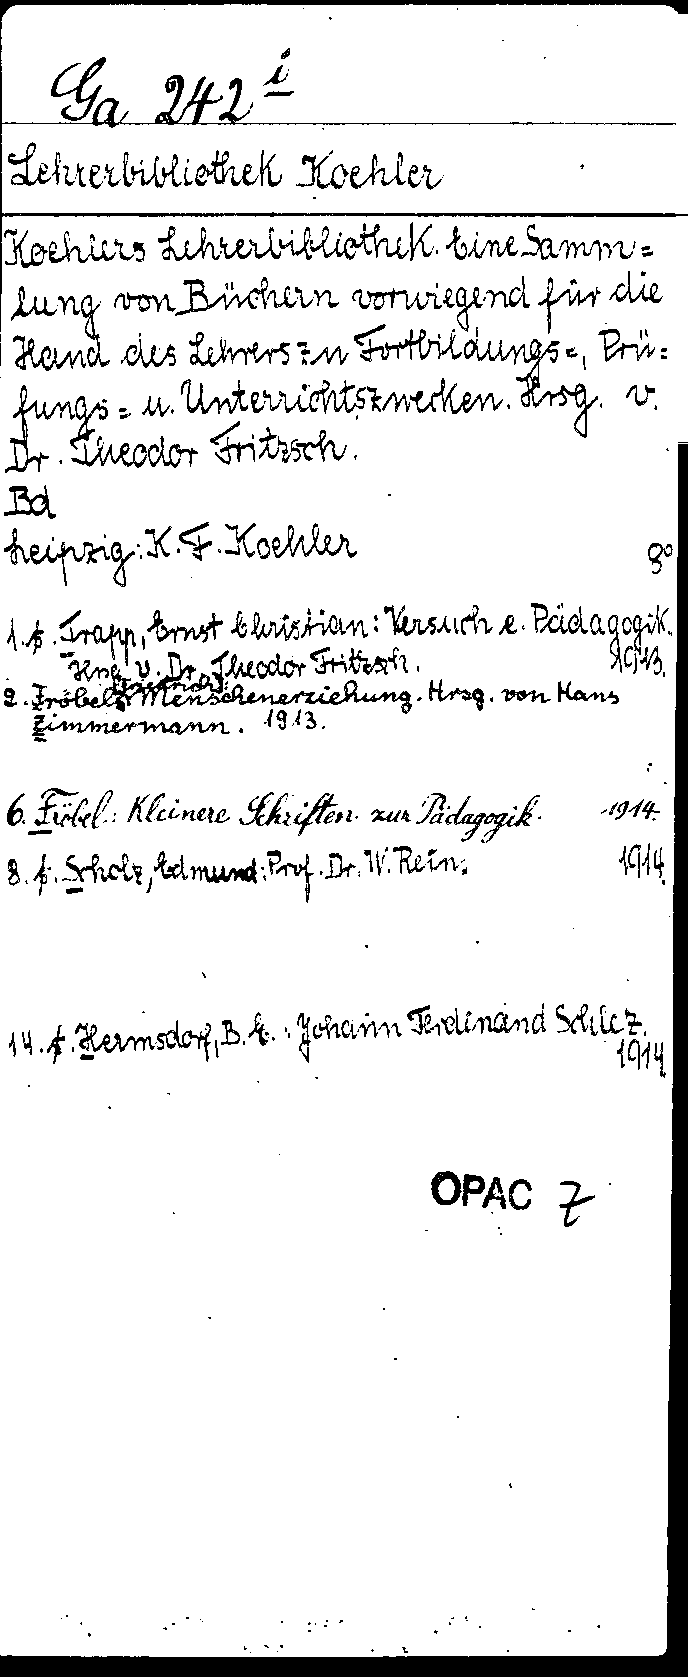 Ga 242 i
Lehrerbibliothek Koehler
Koehlers Lehrerbibliothek. Eine Samm=
lung von Büchern vorwiegend für die
Hand des Lehrers zu Fortbildungs=, Prü=
fungs= u. Unterrichtszwecken. Hrsg. v.
Dr. Theodor Fritzsch.
Bd
Leipzig: K. F. Koehler 8°
1. s. Trapp, Ernst Christian: Versuch e. Pädagogik.
Hrsg. v. Dr. Theodor Fritzsch. 1913.
Friedrich
2. Fröbels Menschenerziehung. Hrsg. von Hans
Zimmermann. 1913.
6. Fröbel: Kleinere Schriften zur Pädagogik. 1914.
8. s. Scholz, Edmund: Prof. Dr. W. Rein. 1914.
14. s. Hermsdorf, B. E.: Johann Ferdinand Schlez.
1914
OPAC Z